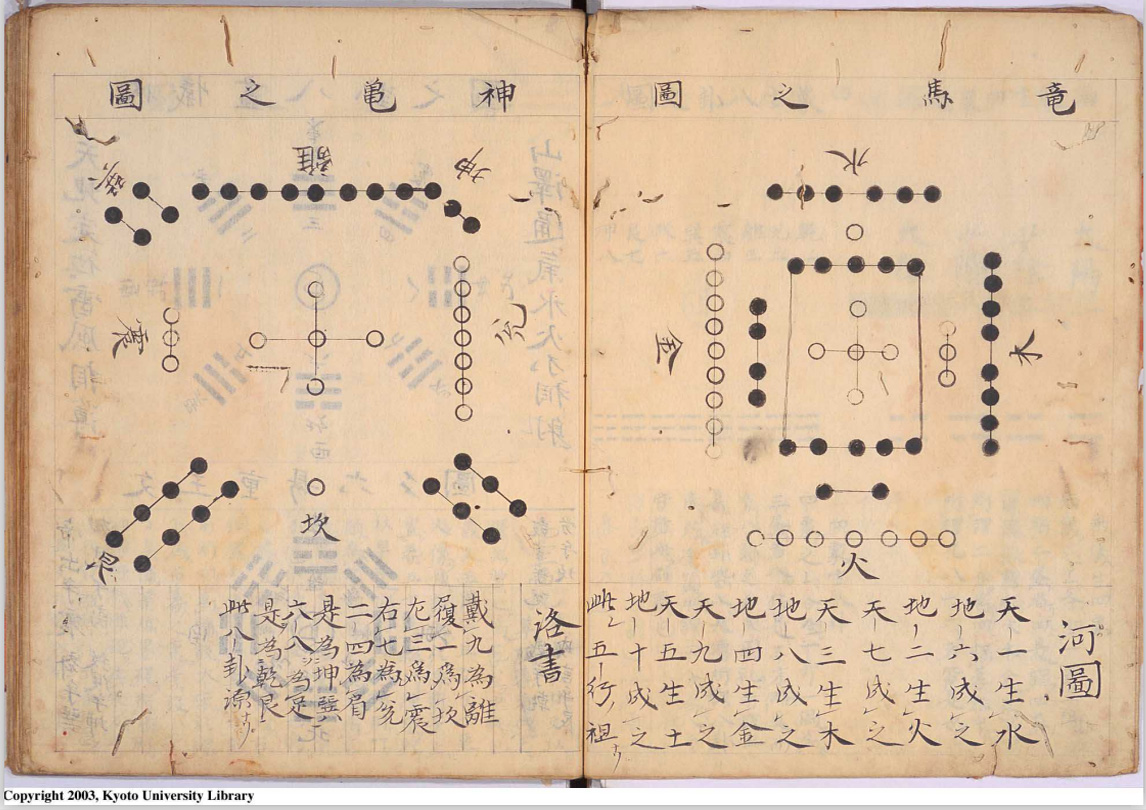 竜馬之圖
水
木
金
火
河圖
天一生水
地六成之
地二生火
天七成之
天三生木
地八成之
地四生金
天九成之
天五生土
地十成之
此五行祖
神亀之圖
坤
離
巽
兌
震
坎
艮
洛書
戴九為離
履一為坎
左三為震
右七為兌
二四為肩
是為坤巽
六八為足
是為乾艮
此八卦源
Copyright 2003, Kyoto University Library